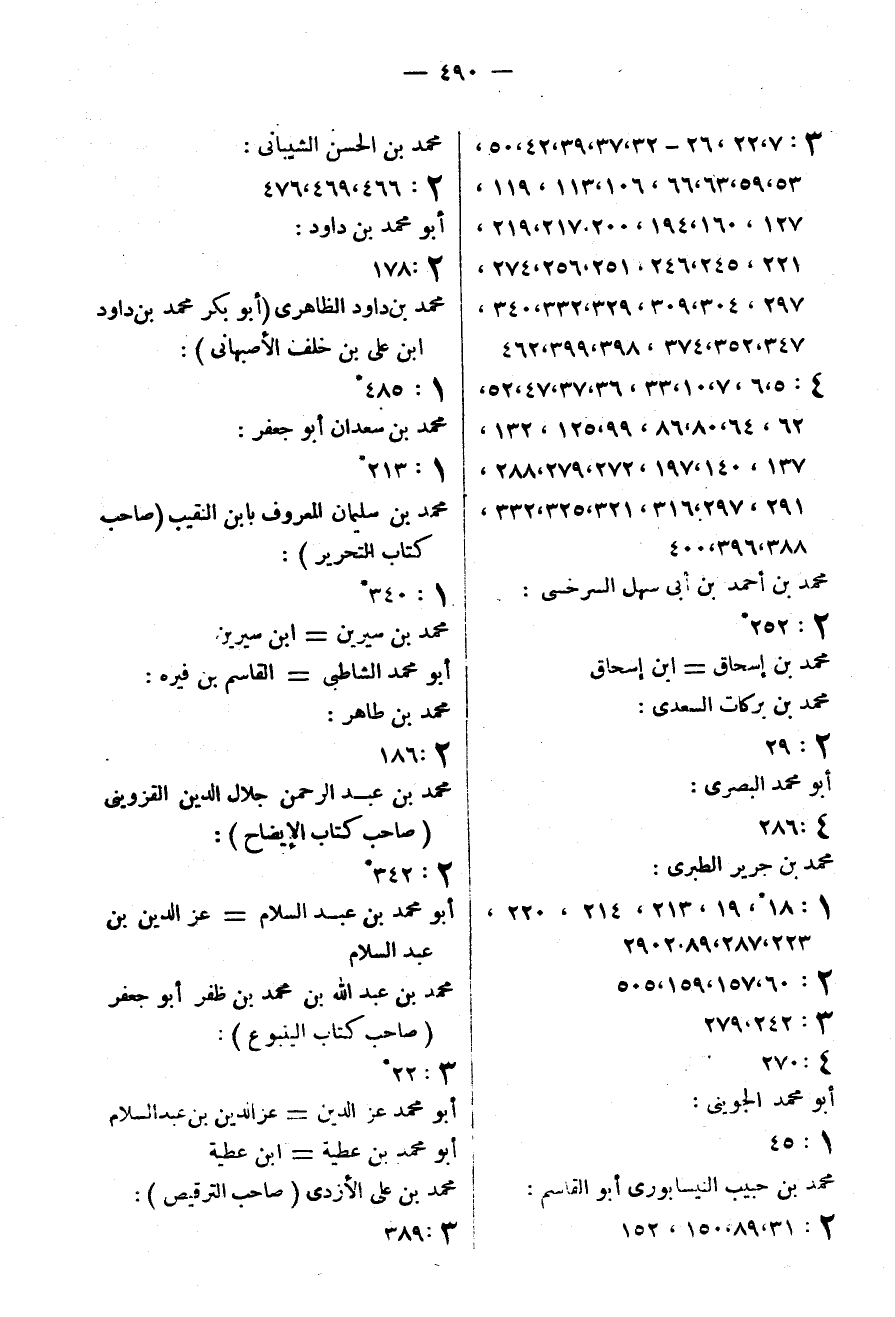 — ٤٩٠ —
٣ : ٢٢،٧ ، ٢٦ – ٥٠،٤٢،٣٩،٣٧،٣٢ ،
٦٦،٦٣،٥٩،٥٣ ، ١١٣،١٠٦ ، ١١٩ ،
١٢٧ ، ١٩٤،١٦٠ ، ٢١٩،٢١٧،٢٠٠ ،
٢٢١ ، ٢٤٦،٢٤٥ ، ٢٧٤،٢٥٦،٢٥١ ،
٢٩٧ ، ٣٠٩،٣٠٤ ، ٣٤٠،٣٣٢،٣٢٩ ،
٣٧٤،٣٥٢،٣٤٧ ، ٤٦٢،٣٩٩،٣٩٨
٤ : ٦،٥ ، ٣٣،١٠،٧ ، ٥٢،٤٧،٣٧،٣٦،
٦٢ ، ٨٦،٨٠،٦٤ ، ١٢٥،٩٩ ، ١٣٢ ،
١٣٧ ، ١٩٧،١٤٠ ، ٢٨٨،٢٧٩،٢٧٢ ،
٢٩١ ، ٣١٦،٢٩٧ ، ٣٣٢،٣٢٥،٣٢١ ،
٤٠٠،٣٩٦،٣٨٨
محمد بن أحمد بن أبى سهل السرخسى :
٢ : ٢٥٢*
محمد بن إسحاق = ابن إسحاق
محمد بن بركات السعدى :
٢ : ٢٩
أبو محمد البصرى :
٤ : ٢٨٦
محمد بن جرير الطبرى :
١ : ١٨* ، ١٩ ، ٢١٣ ، ٢١٤ ، ٢٢٠ ،
٢٩٠٢٠٨٩،٢٨٧،٢٢٣
٢ : ٥٠٥،١٥٩،١٥٧،٦٠
٣ : ٢٧٩،٢٤٢
٤ : ٢٧٠
أبو محمد الجوينى :
١ : ٤٥
محمد بن حبيب النيسابورى أبو القاسم :
٢ : ١٥٠،٨٩،٣١ ، ١٥٢
محمد بن الحسن الشيبانى :
٢ : ٤٧٦،٤٦٩،٤٦٦
أبو محمد بن داود :
٢ : ١٧٨
محمد بن داود الظاهرى (أبو بكر محمد بن داود
ابن على بن خلف الأصبهانى) :
١ : ٤٨٥*
محمد بن سعدان أبو جعفر :
١ : ٢١٣*
محمد بن سليمان المعروف بابن النقيب (صاحب
كتاب التحرير) :
١ : ٣٤٠*
محمد بن سيرين = ابن سيرين
أبو محمد الشاطبى = القاسم بن فيره :
محمد بن طاهر :
٢ : ١٨٦
محمد بن عبد الرحمن جلال الدين القزوينى
(صاحب كتاب الإيضاح) :
٢ : ٣٤٢*
أبو محمد بن عبد السلام = عز الدين بن
عبد السلام
محمد بن عبد الله بن محمد بن ظفر أبو جعفر
(صاحب كتاب الينبوع) :
٣ : ٢٢*
أبو محمد عز الدين = عز الدين بن عبد السلام
أبو محمد بن عطية = ابن عطية
محمد بن على الأزدى (صاحب الترقيص) :
٣ : ٣٨٩